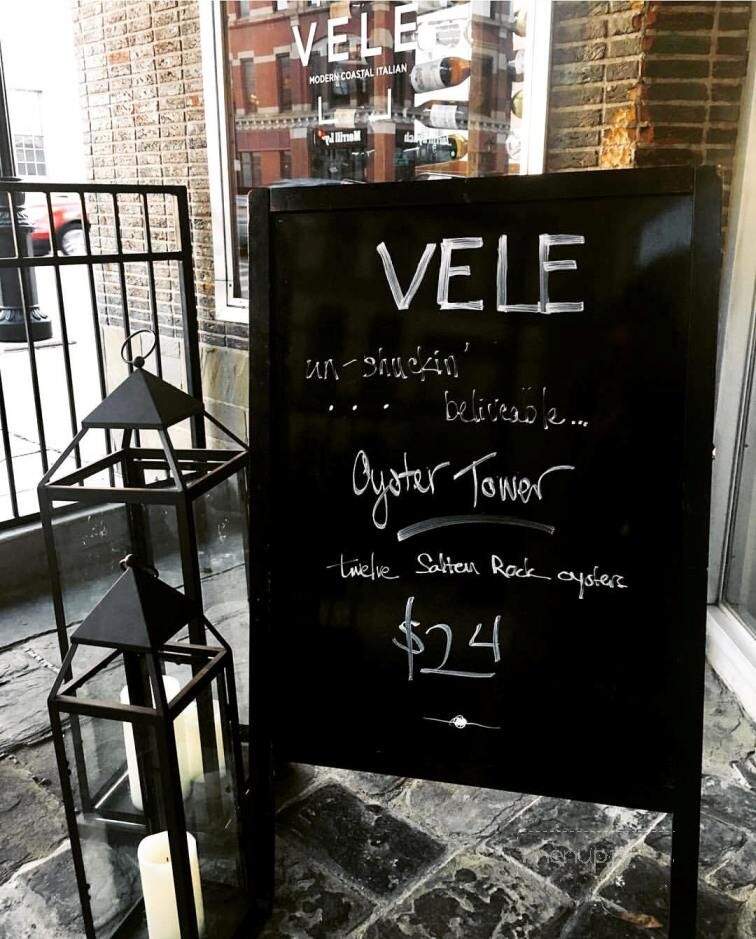 VELE
MODERN COASTAL ITALIAN
VELE
un-shuckin'
... beliveable...
Oyster Tower
twelve Salten Rock oysters
$24